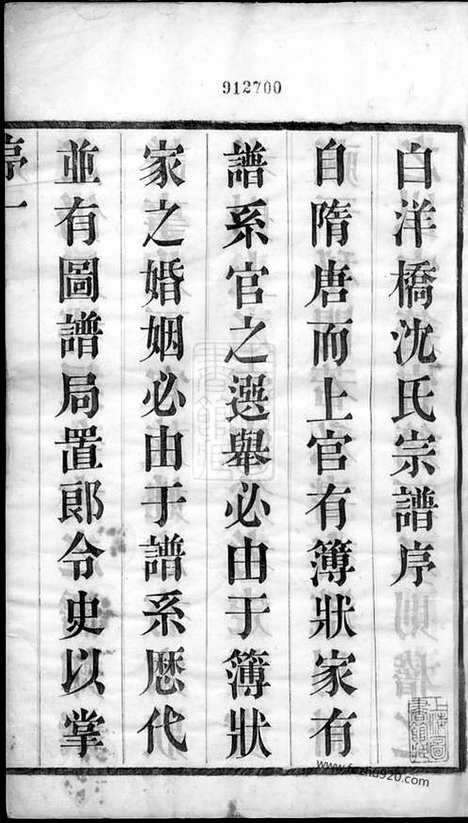 912700
白洋橋沈氏宗譜序
自隋唐而上官有簿狀家有
譜系官之選舉必由于簿狀
家之婚姻必由于譜系歷代
並有圖譜局置郎令史以掌
序一
www.fezhu920.com